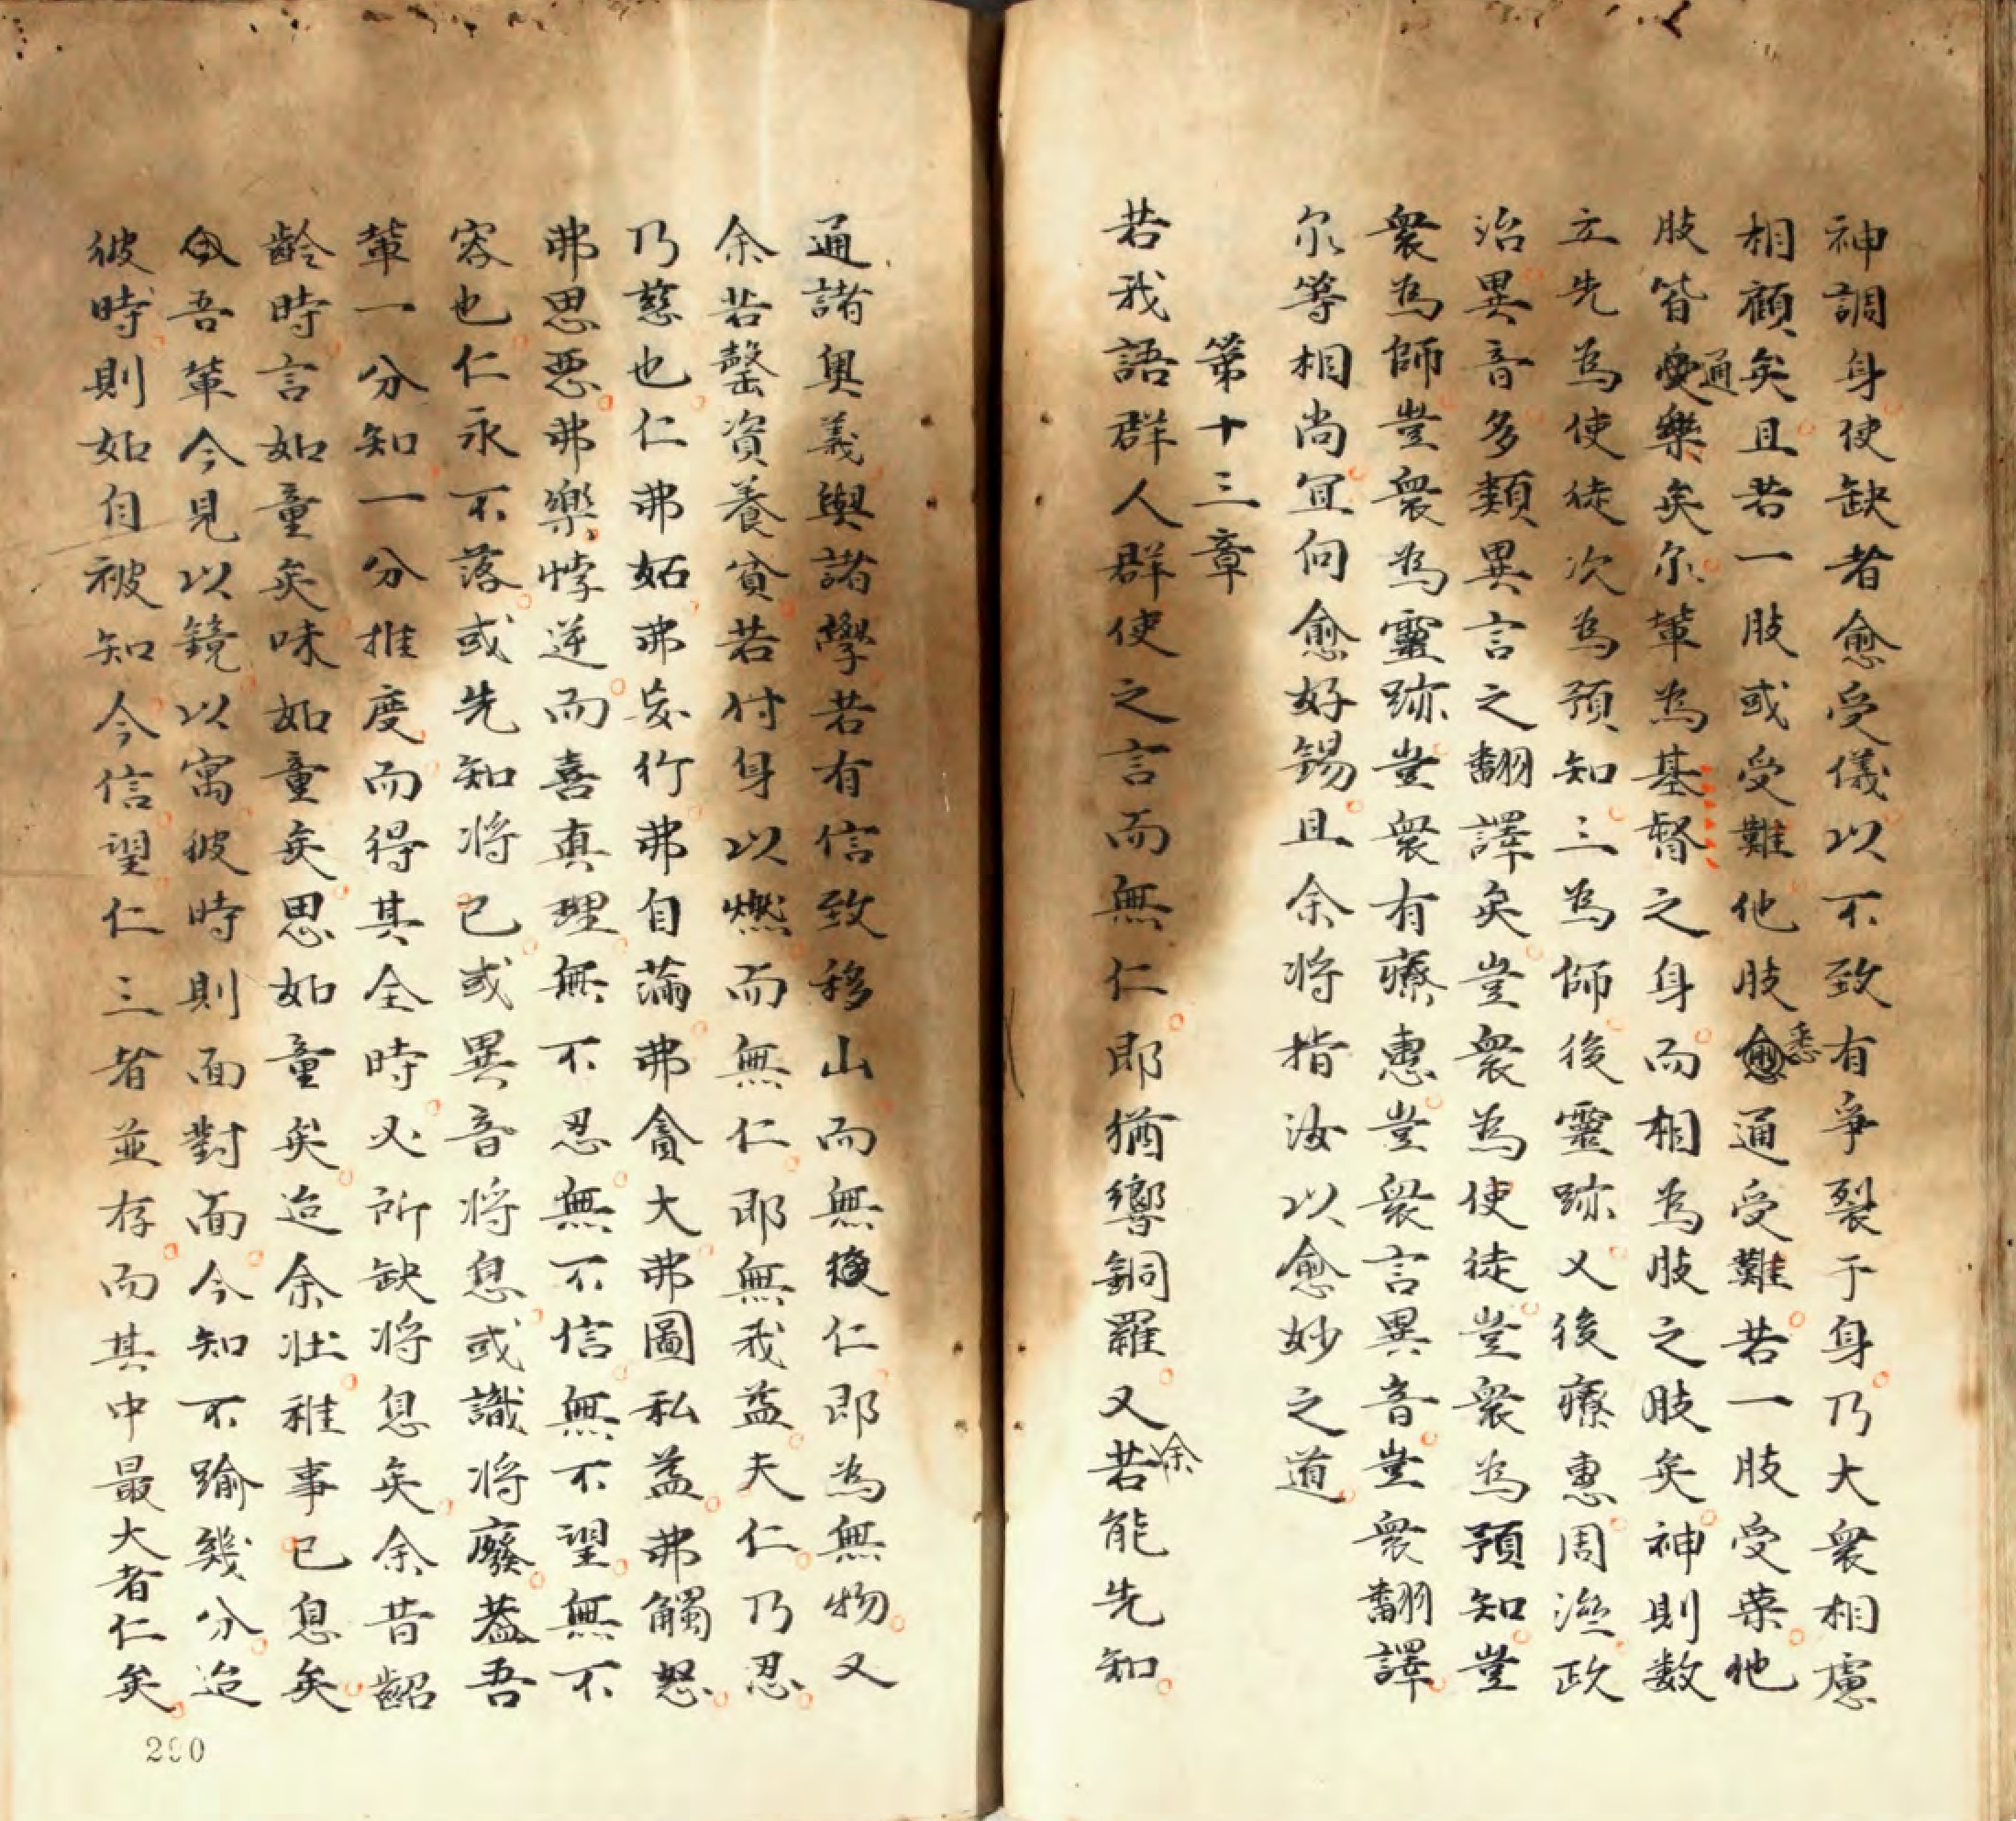 神調身使缺者愈受儀以不致有爭裂于身乃大衆相慮
相顧矣且若一肢或受難他肢悉通受難若一肢受榮他
肢皆通樂矣尔軰為基督之身而相為肢之肢矣神則数
立先為使徒次為預知三為師後靈跡又後療惠周濟政
治異音多類異言之翻譯矣豈衆為使徒豈衆為預知豈
衆為師豈衆為靈跡豈衆有療惠豈衆言異音豈衆翻譯
尔等相尚宜向愈好錫且余将指汝以愈妙之道
第十三章
若我語群人群使之言而無仁即猶響銅羅又若余能先知
通諸奧義與諸學若有信致移山而無仁即為無物又
余若罄資養貧若付身以燃而無仁即無我益夫仁乃忍
乃慈也仁弗妬弗妄行弗自滿弗貪大弗圖私益弗觸怒
弗思惡弗樂悖逆而喜真理無不忍無不信無不望無不
容也仁永不落或先知将已或異音将息或識将廢葢吾
軰一分知一分推度而得其全時必所缺将息矣余昔齠
齡時言如童矣味如童矣思如童矣迨余壯稚事已息矣
吾軰今見以鏡以寓彼時則面對面今知不踰幾分迨
彼時則如自被知今信望仁三者並存而其中最大者仁矣
290